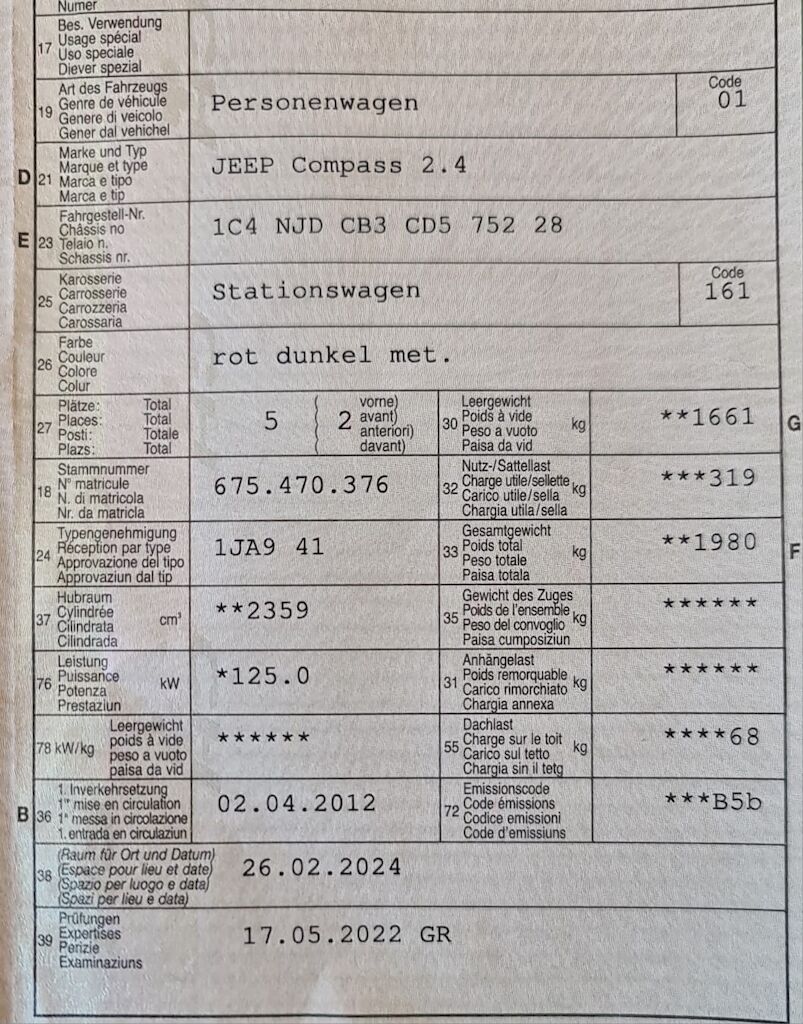 Numer
17 Bes. Verwendung
Usage spécial
Uso speciale
Diever spezial
19 Art des Fahrzeugs
Genre de véhicule
Genere di veicolo
Gener dal vehichel
Personenwagen
Code
01
D 21 Marke und Typ
Marque et type
Marca e tipo
Marca e tip
JEEP Compass 2.4
E 23 Fahrgestell-Nr.
Châssis no
Telaio n.
Schassis nr.
1C4 NJD CB3 CD5 752 28
25 Karosserie
Carrosserie
Carrozzeria
Carossaria
Stationswagen
Code
161
26 Farbe
Couleur
Colore
Colur
rot dunkel met.
27 Plätze: Total
Places: Total
Posti: Totale
Plazs: Total
5 ( 2 vorne)
avant)
anteriori)
davant)
30 Leergewicht
Poids à vide
Peso a vuoto
Paisa da vid
kg
**1661
G
18 Stammnummer
N° matricule
N. di matricola
Nr. da matricla
675.470.376
32 Nutz-/Sattellast
Charge utile/sellette
Carico utile/sella
Chargia utila/sella
kg
***319
24 Typengenehmigung
Réception par type
Approvazione del tipo
Approvaziun dal tip
1JA9 41
33 Gesamtgewicht
Poids total
Peso totale
Paisa totala
kg
**1980
F
37 Hubraum
Cylindrée
Cilindrata
Cilindrada
cm³
**2359
35 Gewicht des Zuges
Poids de l'ensemble
Peso del convoglio
Paisa cumposiziun
kg
******
76 Leistung
Puissance
Potenza
Prestaziun
kW
*125.0
31 Anhängelast
Poids remorquable
Carico rimorchiato
Chargia annexa
kg
******
78 kW/kg Leergewicht
poids à vide
peso a vuoto
paisa da vid
******
55 Dachlast
Charge sur le toit
Carico sul tetto
Chargia sin il tetg
kg
****68
B 36 1. Inverkehrsetzung
1re mise en circulation
1a messa in circolazione
1. entrada en circulaziun
02.04.2012
72 Emissionscode
Code émissions
Codice emissioni
Code d'emissiuns
***B5b
38 (Raum für Ort und Datum)
(Espace pour lieu et date)
(Spazio per luogo e data)
(Spazi per lieu e data)
26.02.2024
39 Prüfungen
Expertises
Perizie
Examinaziuns
17.05.2022 GR